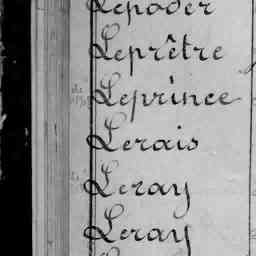 Lepoder
Leprêtre
Leprince
Lerais
Leray
Leray